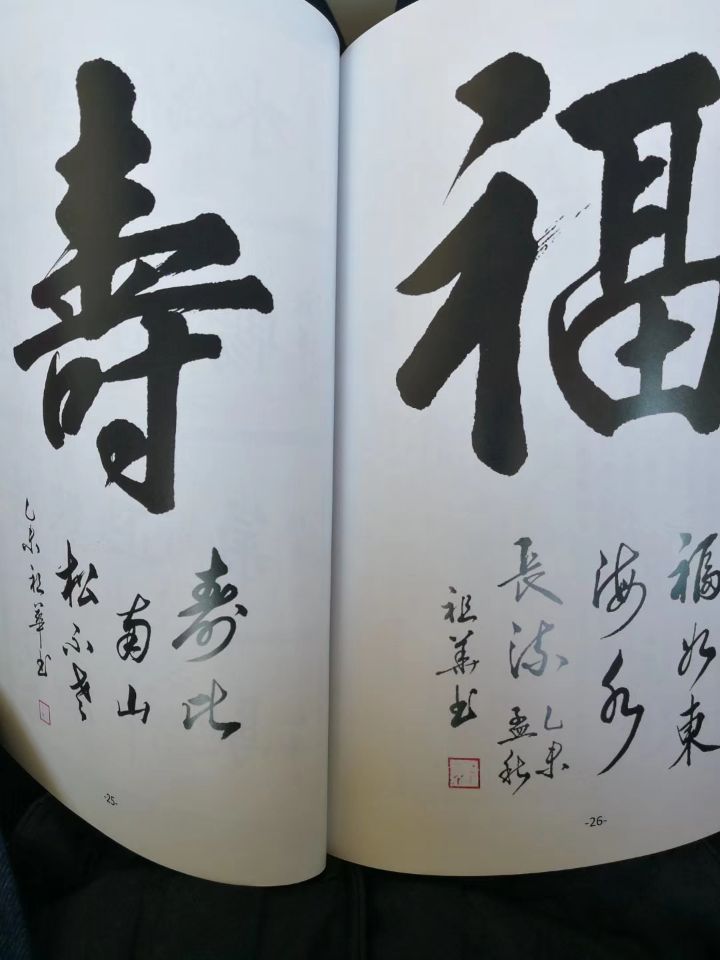 壽
寿比
南山
松不老
乙未祖華书
-25-
福
福如東
海水
長流
乙未
孟秋
祖華书
-26-